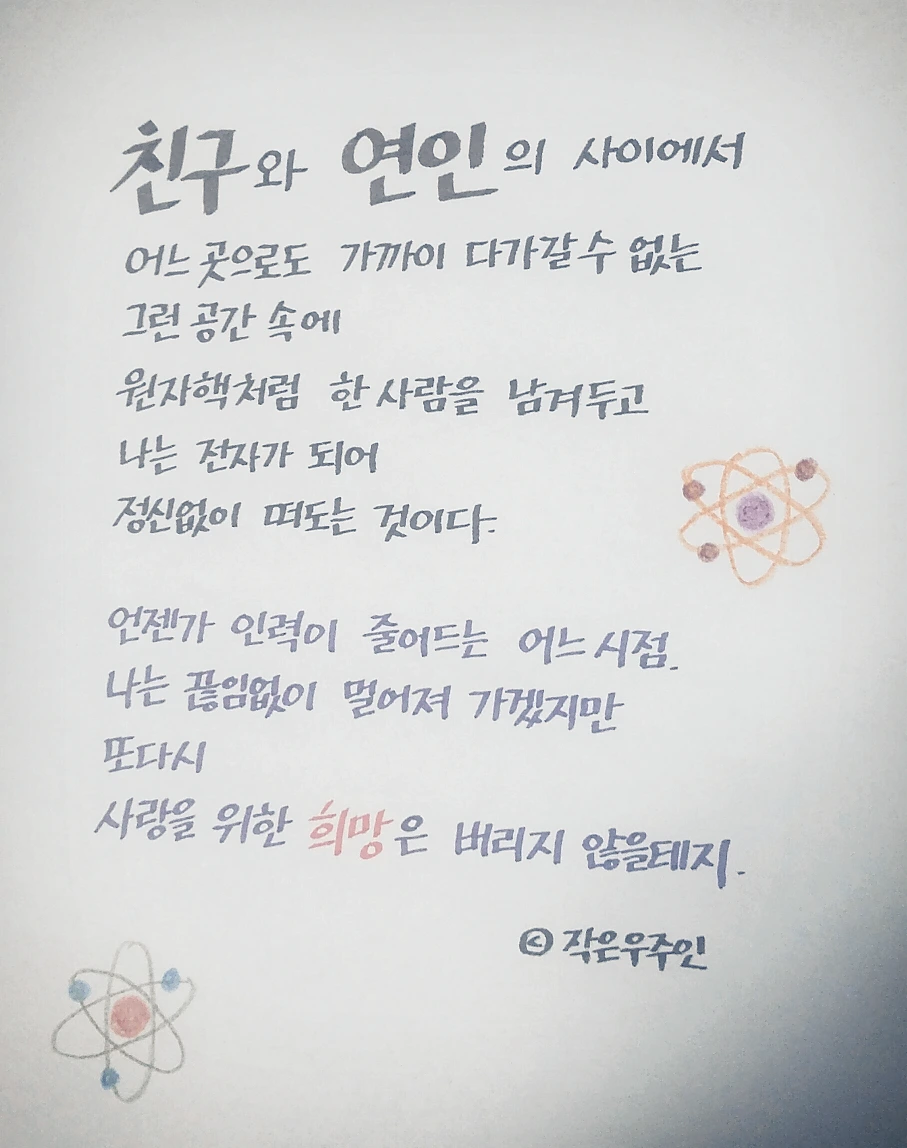 친구와 연인의 사이에서
어느 곳으로도 가까이 다가갈 수 없는
그런 공간 속에
원자핵처럼 한 사람을 남겨두고
나는 전자가 되어
정신없이 떠도는 것이다.
언젠가 인력이 줄어드는 어느 시점.
나는 끊임없이 멀어져 가겠지만
또다시
사랑을 위한 희망은 버리지 않을테지.
© 작은우주인